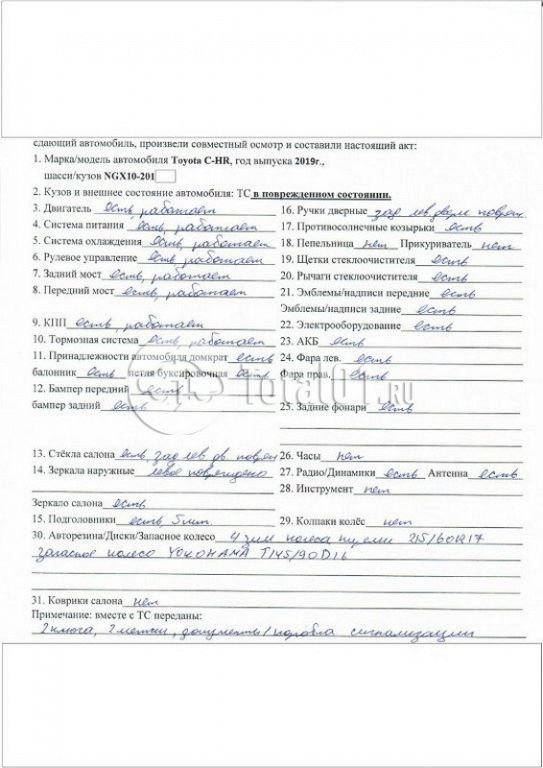 сдающий автомобиль, произвели совместный осмотр и составили настоящий акт:
1. Марка/модель автомобиля Toyota C-HR, год выпуска 2019г.,
шасси/кузов NGX10-201
2. Кузов и внешнее состояние автомобиля: ТС в поврежденном состоянии.
3. Двигатель есть, работает
4. Система питания есть, работает
5. Система охлаждения есть, работает
6. Рулевое управление есть, работает
7. Задний мост есть, работает
8. Передний мост есть, работает
9. КПП есть, работает
10. Тормозная система есть, работает
11. Принадлежности автомобиля домкрат есть
балонник есть петля буксировочная есть
12. Бампер передний есть
бампер задний есть
13. Стёкла салона есть, зад лев дв. повреж
14. Зеркала наружные левое повреждено
Зеркало салона есть
15. Подголовники есть, 5 шт.
16. Ручки дверные зад. лев. двери повреж
17. Противосолнечные козырьки есть
18. Пепельница нет Прикуриватель нет
19. Щетки стеклоочистителя есть
20. Рычаги стеклоочистителя есть
21. Эмблемы/надписи передние есть
Эмблемы/надписи задние есть
22. Электрооборудование есть
23. АКБ есть
24. Фара лев. есть
Фара прав. есть
25. Задние фонари есть
26. Часы нет
27. Радио/Динамики есть Антенна есть
28. Инструмент нет
29. Колпаки колёс нет
30. Авторезина/Диски/Запасное колесо 4 зим колеса 215/60R17
запасное колесо YOKOHAMA T145/90D16
31. Коврики салона нет
Примечание: вместе с ТС переданы:
2 ключа, 2 метки, документы/коробка сигнализации
Total01.ru